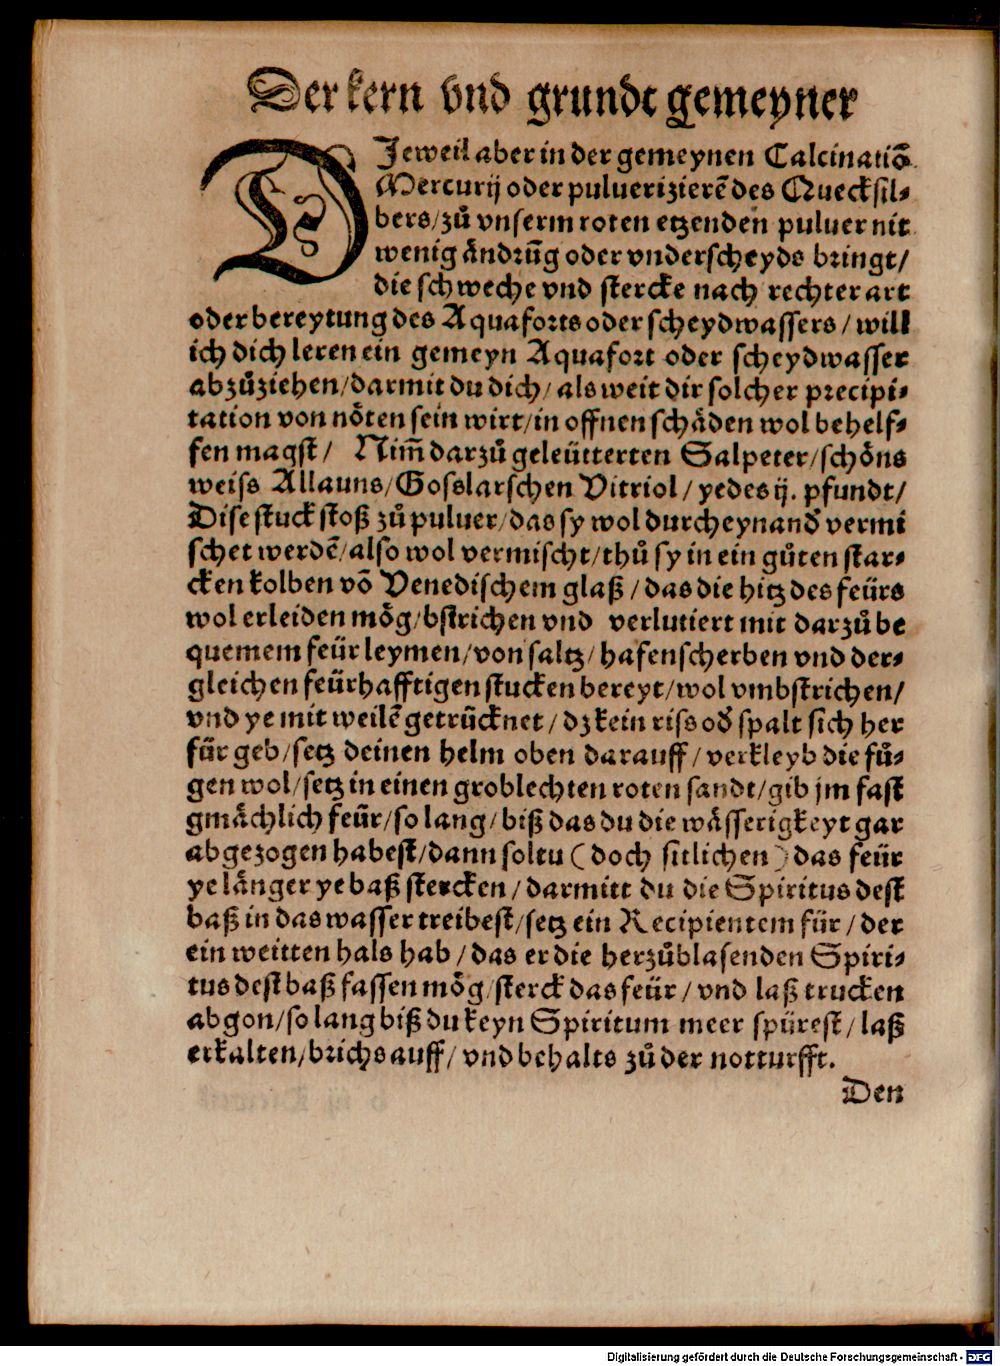 Der kern vnd grundt gemeyner
DJeweil aber in der gemeynen Calcinatiõ
Mercurij oder puluerizierẽ des Quecksil⸗
bers/zů vnserm roten etzenden puluer nit
wenig ändrũg oder vnderscheyds bringt/
die schweche vnd stercke nach rechter art
oder bereytung des Aquaforts oder scheydwassers/will
ich dich leren ein gemeyn Aquafort oder scheydwasser
abzůziehen/darmit du dich/als weit dir solcher precipi⸗
tation von nöten sein wirt/in offnen schäden wol behelf⸗
fen magst/ Nim̃ darzů geleütterten Salpeter/schöns
weiss Allauns/Gosslarschen Vitriol/yedes ij. pfundt/
Dise stuck stoß zů puluer/das sy wol durcheynand̾ vermi
schet werdẽ/also wol vermischt/thů sy in ein gůten star⸗
cken kolben võ Venedischem glaß/das die hitz des feürs
wol erleiden mög/bstrichen vnd verlutiert mit darzů be
quemem feür leymen/von saltz/hafenscherben vnd der⸗
gleichen feürhafftigen stucken bereyt/wol vmbstrichen/
vnd ye mit weilẽ getrücknet/dz kein riss od̾ spalt sich her
für geb/setz deinen helm oben darauff/verkleyb die fů⸗
gen wol/setz in einen groblechten roten sandt/gib jm fast
gmächlich feür/so lang/biß das du die wässerigkeyt gar
abgezogen habest/dann soltu (doch sitlichen) das feür
ye länger ye baß stercken/darmitt du die Spiritus dest
baß in das wasser treibest/setz ein Recipientem für/der
ein weitten hals hab/das er die herzůblasenden Spiri⸗
tus dest baß fassen mög/sterck das feür/vnd laß trucken
abgon/so lang biß du keyn Spiritum meer spürest/laß
erkalten/brichs auff/vnd behalts zů der notturfft.
Den
Digitalisierung gefördert durch die Deutsche Forschungsgemeinschaft - DFG